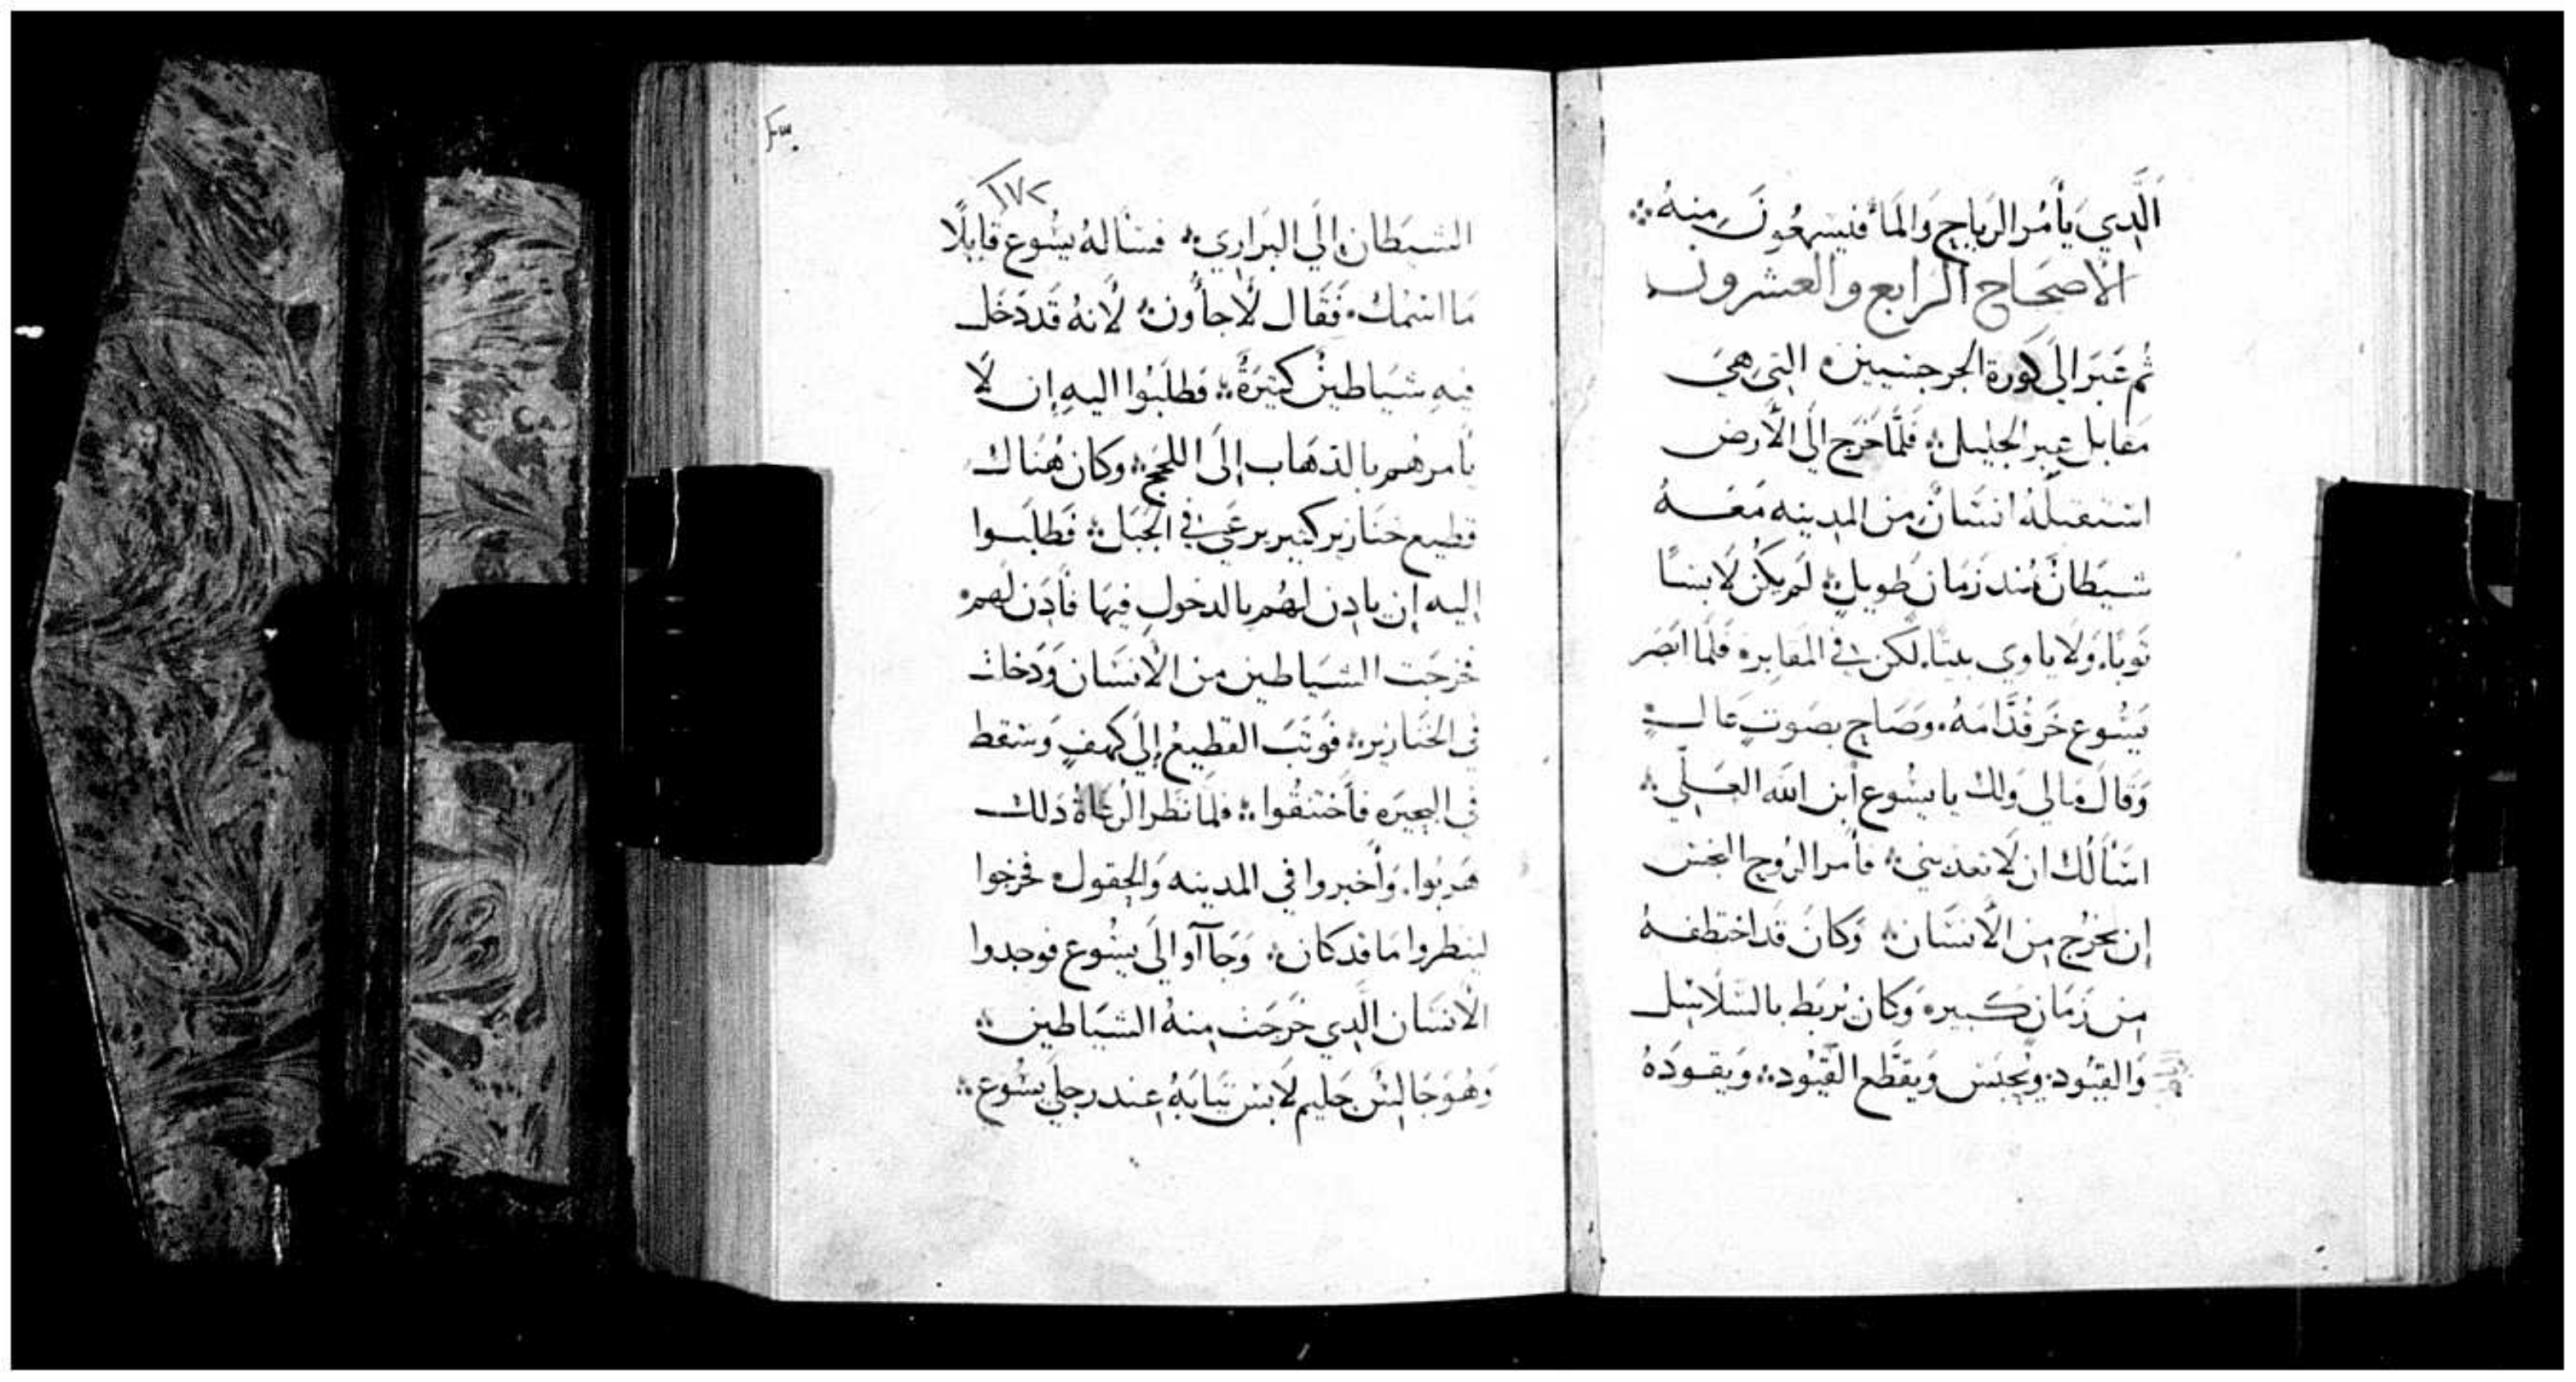 الَّدِي يَأمُر الرِيَاح وَالمَا فَيَسمَعُونَ مِنهُ
الاصحَاح الرابع والعشرون
ثُم عَبَر الَى كورة الجرجسيين التي هِيَ
مقَابل عبر الجليل فَلَمَّا خَرَج الَى الأرض
استقبلهُ انسَان مِن المدينه مَعَــهُ
شَيطَان مُند زمَان طَويلٍ لَم يكُن لَابسًا
تَوبًا وَلَا يَاوي بيتًا لكن في المقَابر فَلَمَا ابصَر
يَسُوع خَر قُدَّامَهُ وَصَاح بصَوتٍ عَالٍ
وَقَال مَالي وَلك يا يسُوع ابن الله العَلي
اسَالك ان لَا تعدبني فامر الرُوح النجس
ان يخرُج مِن الأنسَان وَكَانَ قَد اختطفهُ
مِن زَمَان كبير وَكَان يُربَط بالسَلَاسِل
وَالقيُود ويُحبَس وَيقَطع القيُود وَيقودَهُ
١٧٢
الشَيطَان الَي البَرَاري فسَالهُ يسُوع قَايلًا
مَا اسمُك فَقَال لَاجَاوُن لَانهُ قَد دَخَل
فيهِ شيَاطين كتيرَةً فطلَبُوا اليهِ ان لَا
يَامرهُم بالدهَاب إلَى اللجج وكان هُنَاك
قطيع خنَازير كتير يرعَى في الجَبَل فَطَلَبوا
اليه ان يادن لهُم بالدخول فيهَا فَادَن لهم
فخرجَت الشيَاطين مِن الأنسَان وَدَخلت
في الخنَازير فَوتَبَ القطِيعُ إلَي كهفٍ وَسَقط
في البحيَره فأختنقُوا فلمَا نظَر الرعَاةُ دَلك
هَربُوا وَأخبروا في المدينه وَالحقول فخرجُوا
لينظروا مَا قد كَان وَجَآوا الَى يسُوع فوجدوا
الأنسَان الَدي خَرجَت مِنهُ الشيَاطين
وَهُوَ جَالسٌ حَليم لَابس تيَابَهُ عِند رجلَي يسُوع